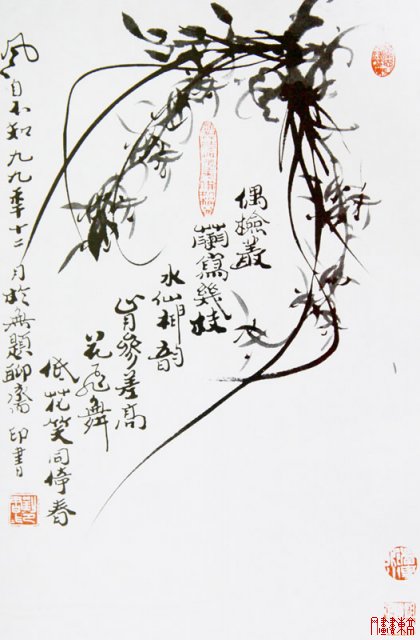 偶撿叢
蘭寫幾枝
水仙韵
肯參差高
花飛舞
低花笑同倚春
風自不知九九年十二月於無題聊齋印書